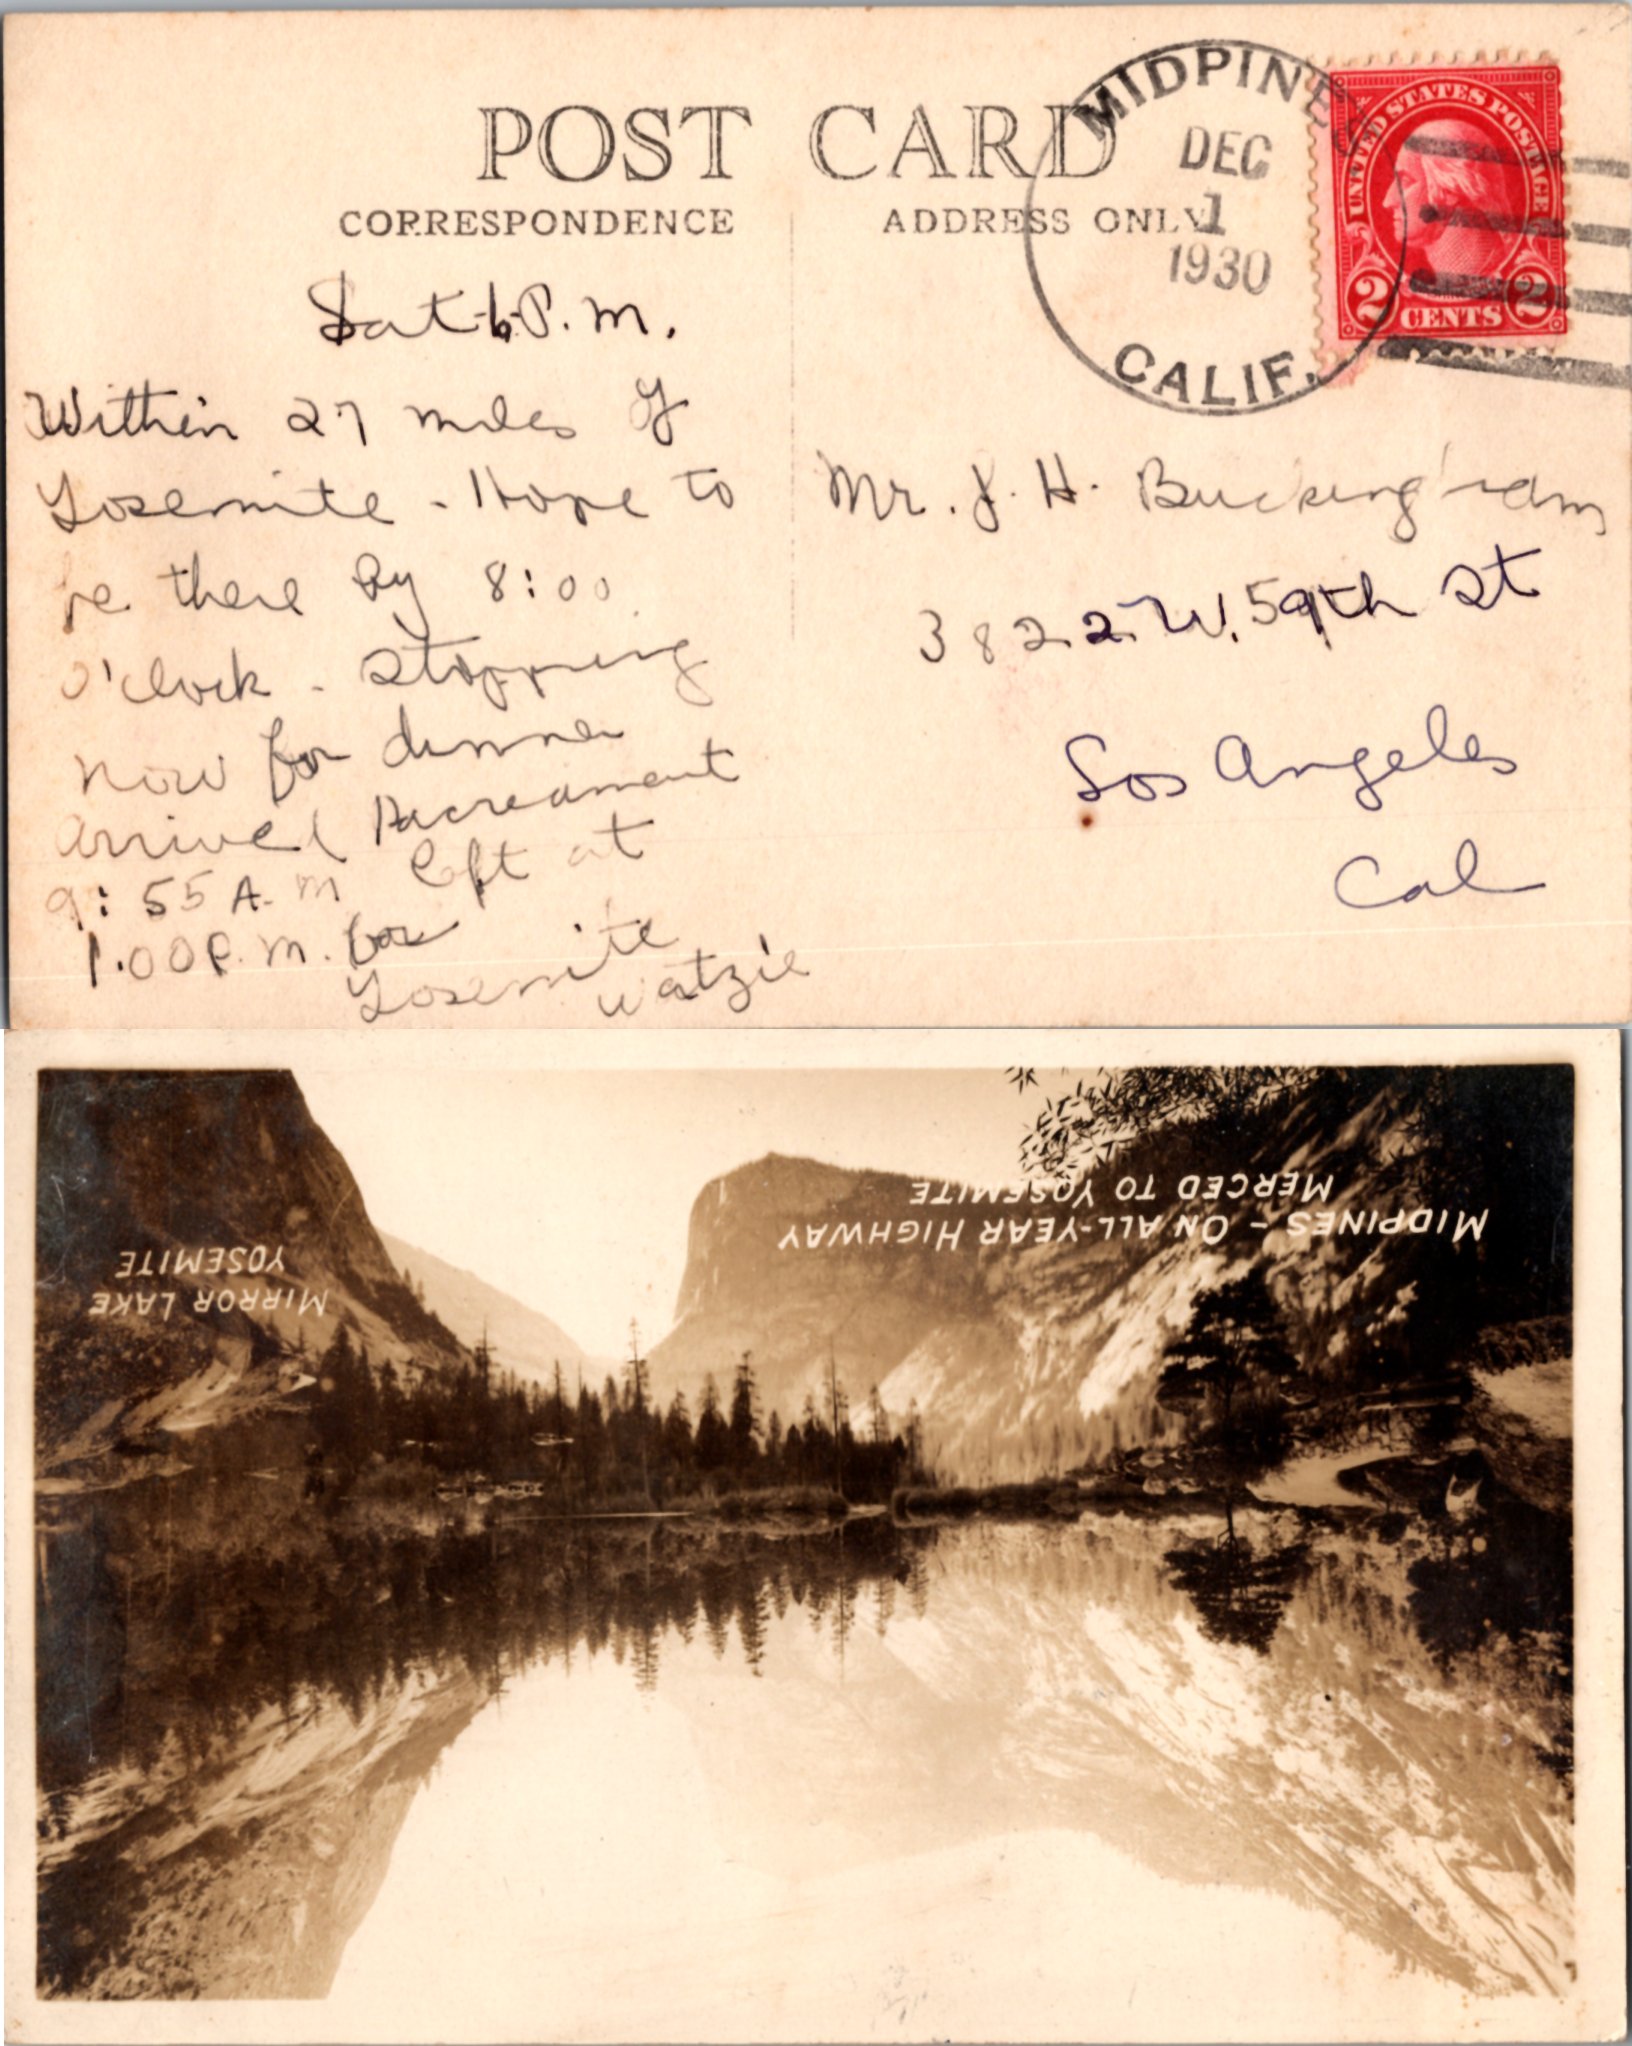 POST CARD
CORRESPONDENCE
ADDRESS ONLY
MIDPINES
DEC
1
1930
CALIF.
UNITED STATES POSTAGE
2 CENTS 2
Sat-6-P.M.
Within 27 miles of
Yosemite - Hope to
be there by 8:00
o'clock - stopping
now for dinner
Arrived Sacreament
9:55 A.M left at
1:00 P.M. for
Yosemite
Watzie
Mr. J. H. Buckingham
3822 W. 59th St
Los Angeles
Cal
MIDPINES - ON ALL-YEAR HIGHWAY
MERCED TO YOSEMITE
MIRROR LAKE
YOSEMITE